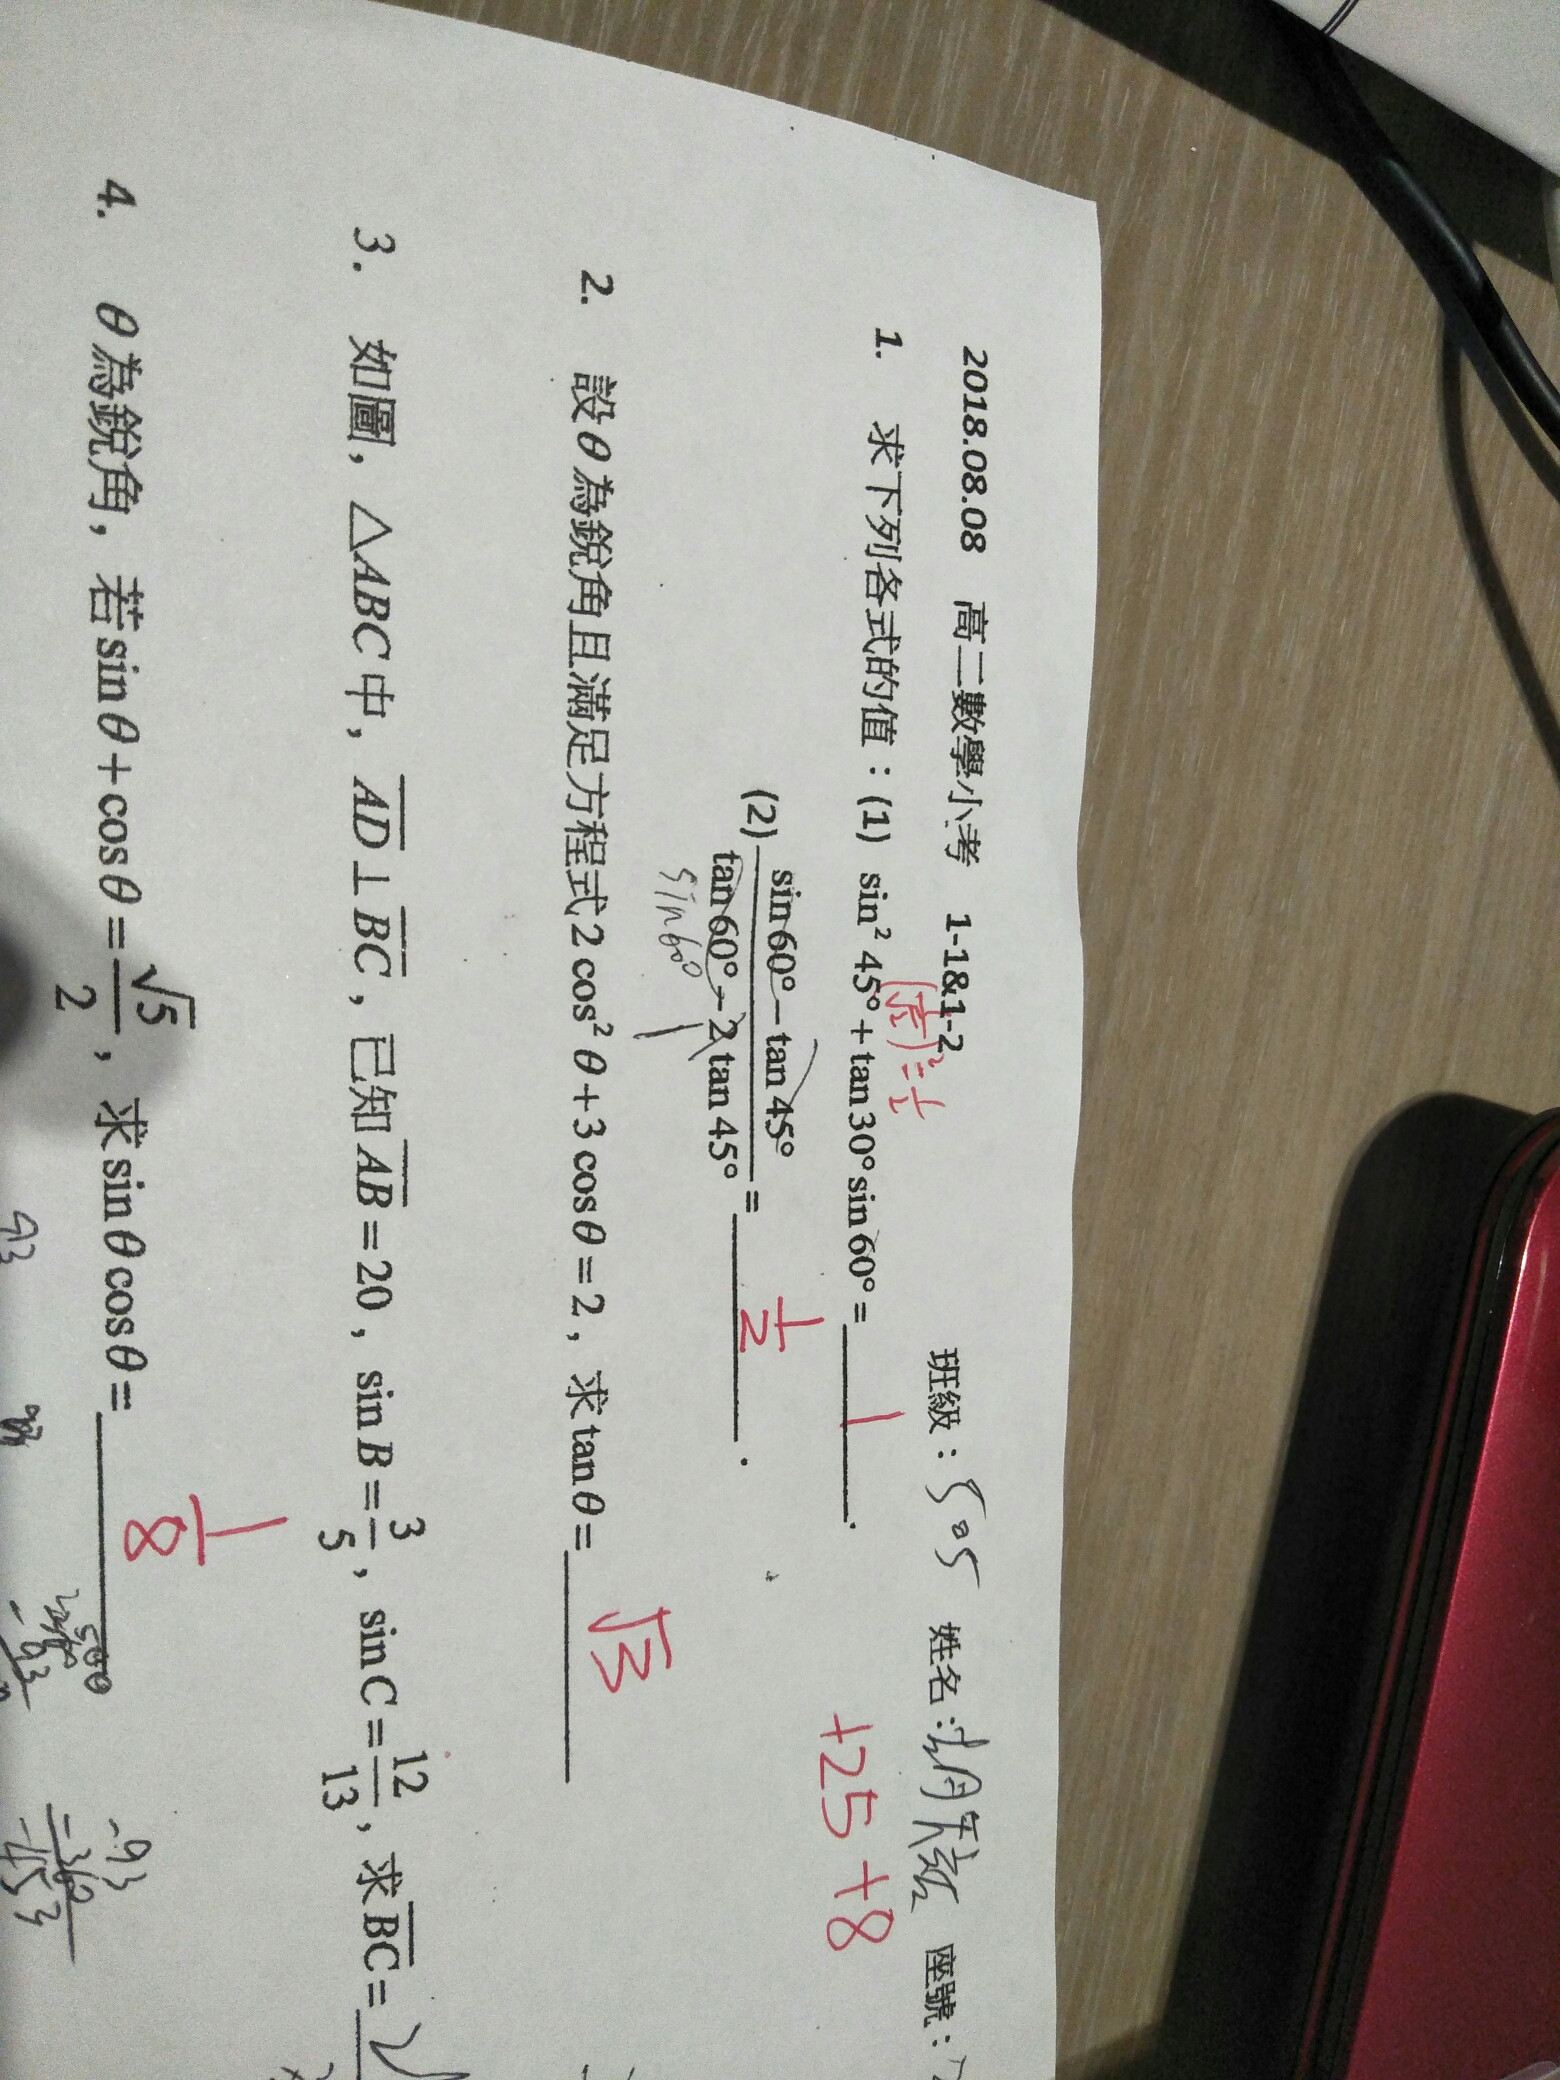 2018.08.08 高二數學小考 1-1&1-2 班級：505 姓名： 座號：
(1/√2)²=1/2
1. 求下列各式的值：(1) sin² 45° + tan 30° sin 60° = 1 .
(2) (sin 60° − tan 45°)/(tan 60° − 2 tan 45°) = 1/2 .
sin60° 1
+25 +8
2. 設θ為銳角且滿足方程式2 cos² θ + 3 cos θ = 2，求 tan θ = √3
3. 如圖，△ABC中，AD⊥BC，已知AB = 20，sin B = 3/5，sin C = 12/13，求BC =
4. θ為銳角，若sin θ + cos θ = √5/2，求sin θ cos θ = 1/8
-93
-360
-453